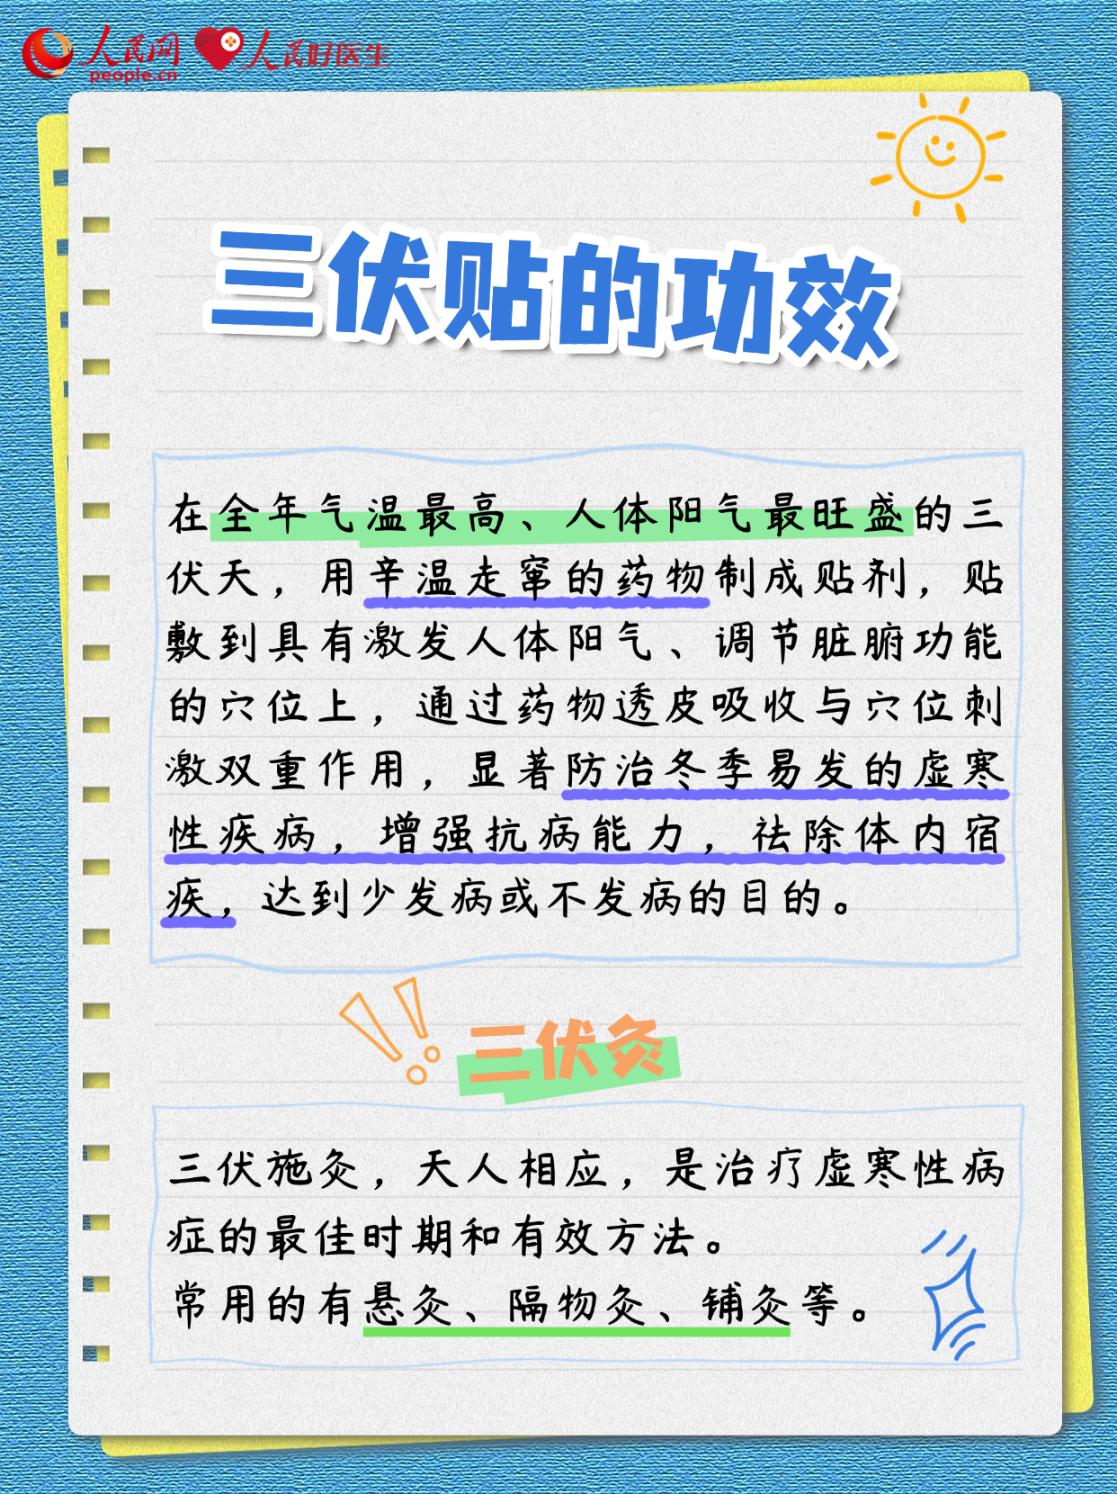 人民网
people.cn
人民好医生
三伏贴的功效
在全年气温最高、人体阳气最旺盛的三
伏天，用辛温走窜的药物制成贴剂，贴
敷到具有激发人体阳气、调节脏腑功能
的穴位上，通过药物透皮吸收与穴位刺
激双重作用，显著防治冬季易发的虚寒
性疾病，增强抗病能力，祛除体内宿
疾，达到少发病或不发病的目的。
三伏灸
三伏施灸，天人相应，是治疗虚寒性病
症的最佳时期和有效方法。
常用的有悬灸、隔物灸、铺灸等。